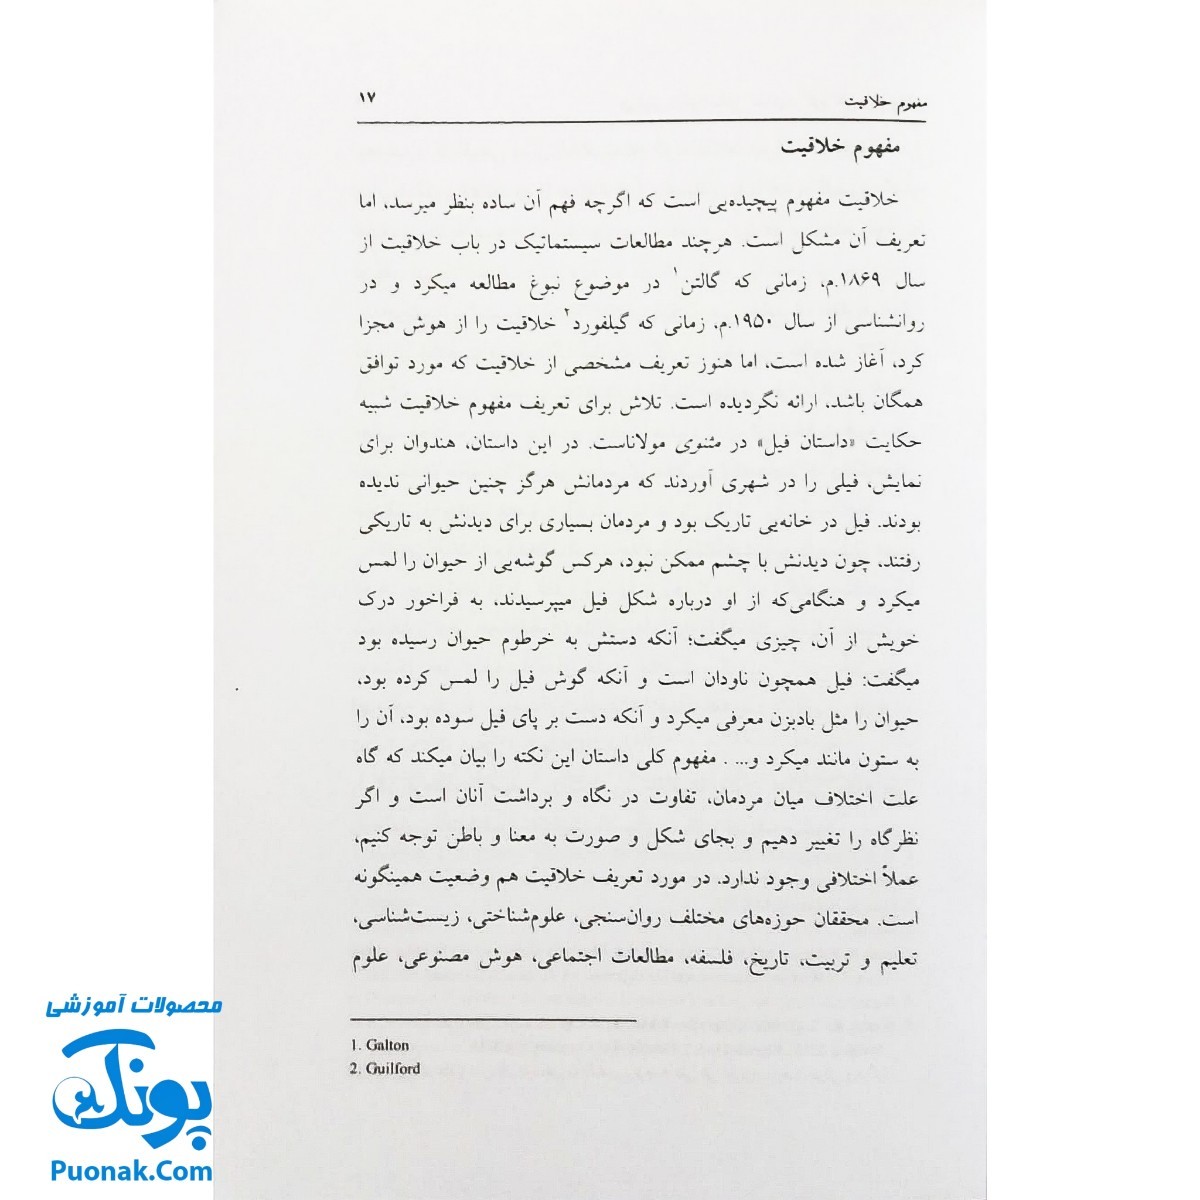 مفهوم خلاقیت ۱۷
مفهوم خلاقیت
خلاقیت مفهوم پیچیده‌یی است که اگرچه فهم آن ساده بنظر میرسد، اما
تعریف آن مشکل است. هرچند مطالعات سیستماتیک در باب خلاقیت از
سال ۱۸۶۹.م، زمانی که گالتن۱ در موضوع نبوغ مطالعه میکرد و در
روانشناسی از سال ۱۹۵۰.م، زمانی که گیلفورد۲ خلاقیت را از هوش مجزا
کرد، آغاز شده است، اما هنوز تعریف مشخصی از خلاقیت که مورد توافق
همگان باشد، ارائه نگردیده است. تلاش برای تعریف مفهوم خلاقیت شبیه
حکایت «داستان فیل» در مثنوی مولاناست. در این داستان، هندوان برای
نمایش، فیلی را در شهری آوردند که مردمانش هرگز چنین حیوانی ندیده
بودند. فیل در خانه‌یی تاریک بود و مردمان بسیاری برای دیدنش به تاریکی
رفتند، چون دیدنش با چشم ممکن نبود، هرکس گوشه‌یی از حیوان را لمس
میکرد و هنگامی‌که از او درباره شکل فیل میپرسیدند، به فراخور درک
خویش از آن، چیزی میگفت؛ آنکه دستش به خرطوم حیوان رسیده بود
میگفت: فیل همچون ناودان است و آنکه گوش فیل را لمس کرده بود،
حیوان را مثل بادبزن معرفی میکرد و آنکه دست بر پای فیل سوده بود، آن را
به ستون مانند میکرد و... . مفهوم کلی داستان این نکته را بیان میکند که گاه
علت اختلاف میان مردمان، تفاوت در نگاه و برداشت آنان است و اگر
نظرگاه را تغییر دهیم و بجای شکل و صورت به معنا و باطن توجه کنیم،
عملاً اختلافی وجود ندارد. در مورد تعریف خلاقیت هم وضعیت همینگونه
است. محققان حوزه‌های مختلف روان‌سنجی، علوم‌شناختی، زیست‌شناسی،
تعلیم و تربیت، تاریخ، فلسفه، مطالعات اجتماعی، هوش مصنوعی، علوم
1. Galton
2. Guilford
محصولات آموزشی
پونک
Puonak.Com